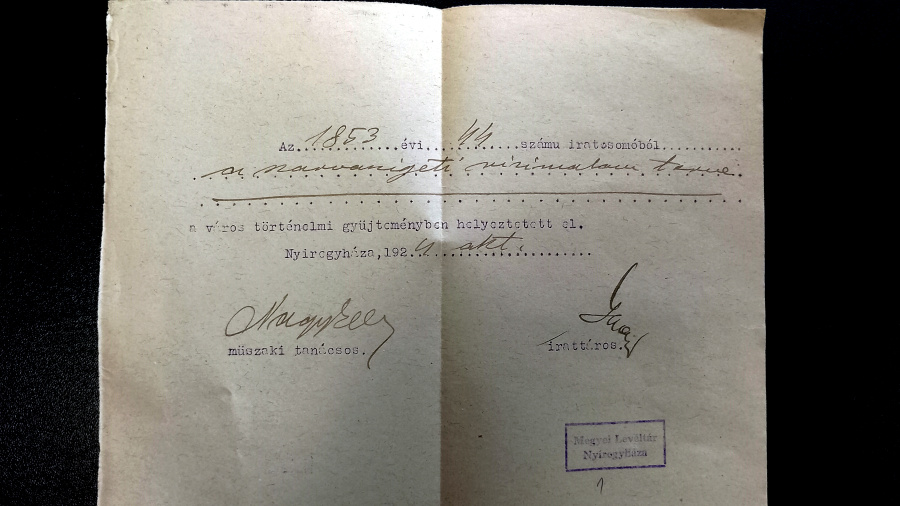 Az 1853 évi 44 számu iratcsomóból
a szarvasszigeti vizimalom terve
a város történelmi gyüjteményben helyeztetett el.
Nyiregyháza, 1924 okt.
műszaki tanácsos.
irattáros.
Megyei Levéltár
Nyíregyháza
1